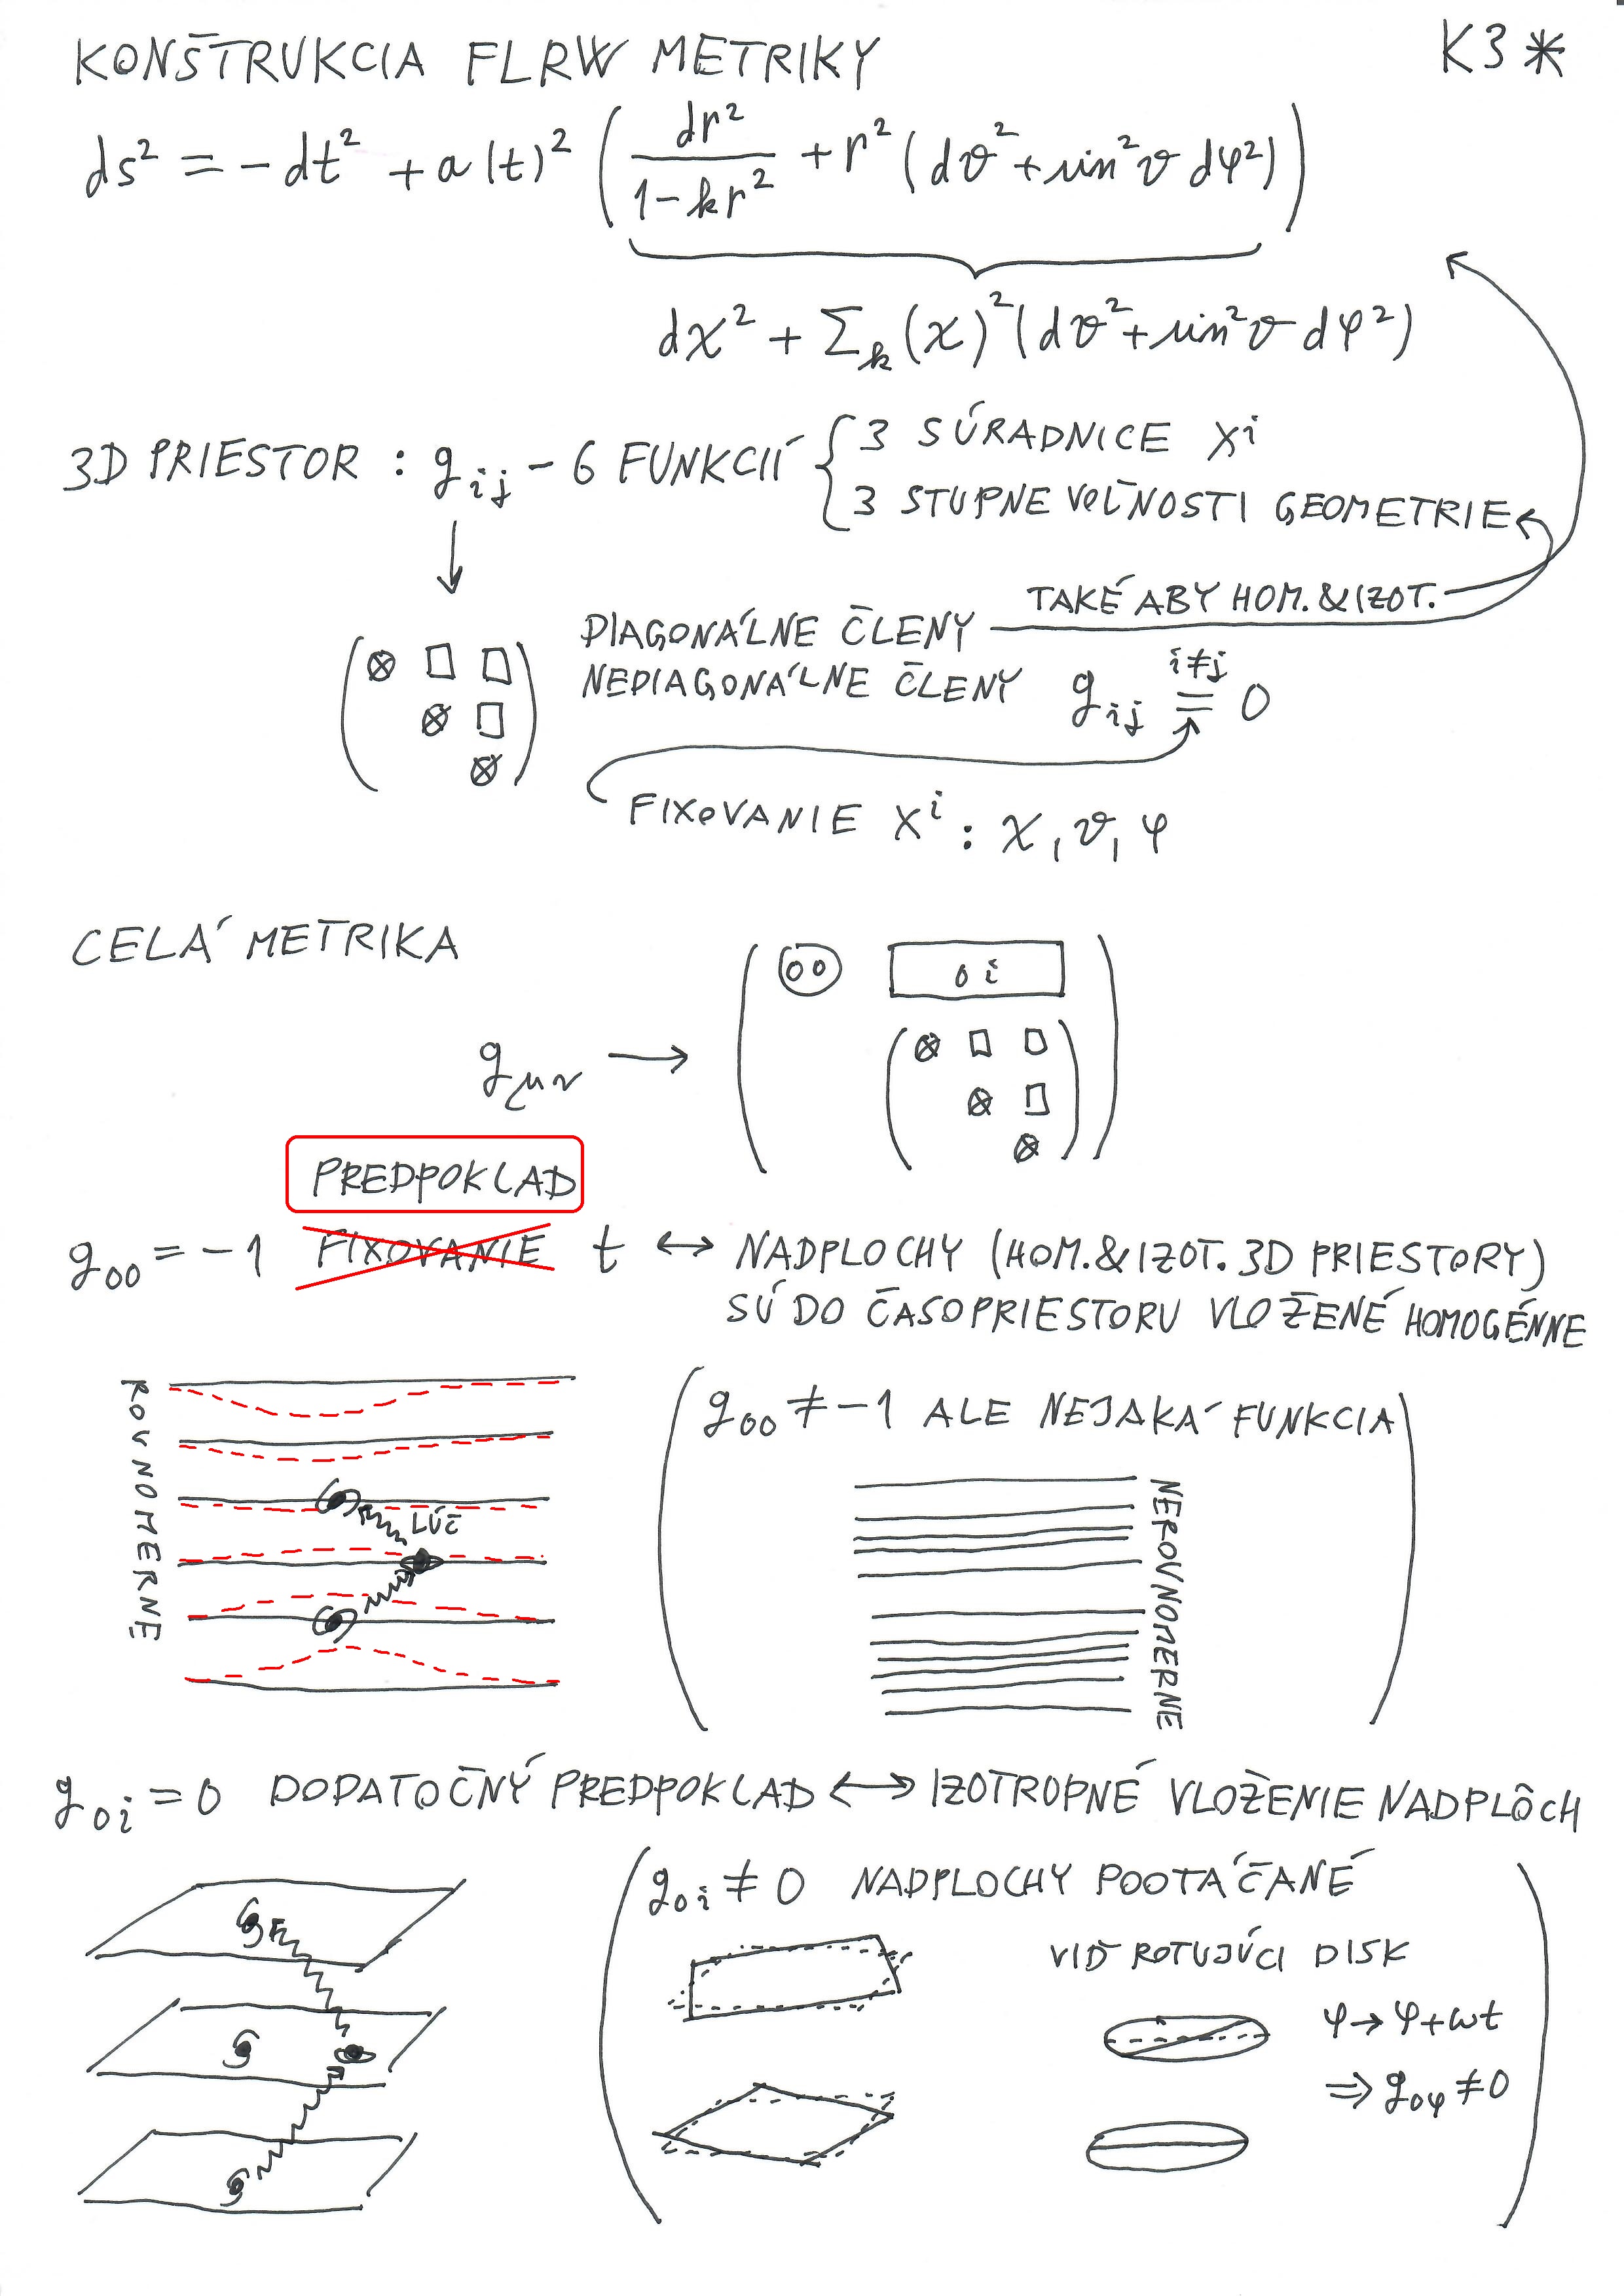 KONŠTRUKCIA FLRW METRIKY K3*
ds² = -dt² + a(t)² ( dr²/(1-kr²) + r² (dϑ² + sin²ϑ dφ²) )
dχ² + Σₖ(χ)² (dϑ² + sin²ϑ dφ²)
3D PRIESTOR : g_ij - 6 FUNKCIÍ { 3 SÚRADNICE xⁱ
3 STUPNE VOĽNOSTI GEOMETRIE
TAKÉ ABY HOM. & IZOT.
DIAGONÁLNE ČLENY
NEDIAGONÁLNE ČLENY g_ij = 0 i≠j
FIXOVANIE xⁱ : χ, ϑ, φ
CELÁ METRIKA
g_μν → ( 00 0i )
PREDPOKLAD
g_00 = -1 FIXOVANIE t ↔ NADPLOCHY (HOM. & IZOT. 3D PRIESTORY)
SÚ DO ČASOPRIESTORU VLOŽENÉ HOMOGÉNNE
ROVNOMERNE
LÚČ
( g_00 ≠ -1 ALE NEJAKÁ FUNKCIA )
NEROVNOMERNE
g_0i = 0 DODATOČNÝ PREDPOKLAD ↔ IZOTROPNÉ VLOŽENIE NADPLÔCH
( g_0i ≠ 0 NADPLOCHY POOTÁČANÉ )
VIĎ ROTUJÚCI DISK
φ → φ + ωt
⇒ g_0φ ≠ 0